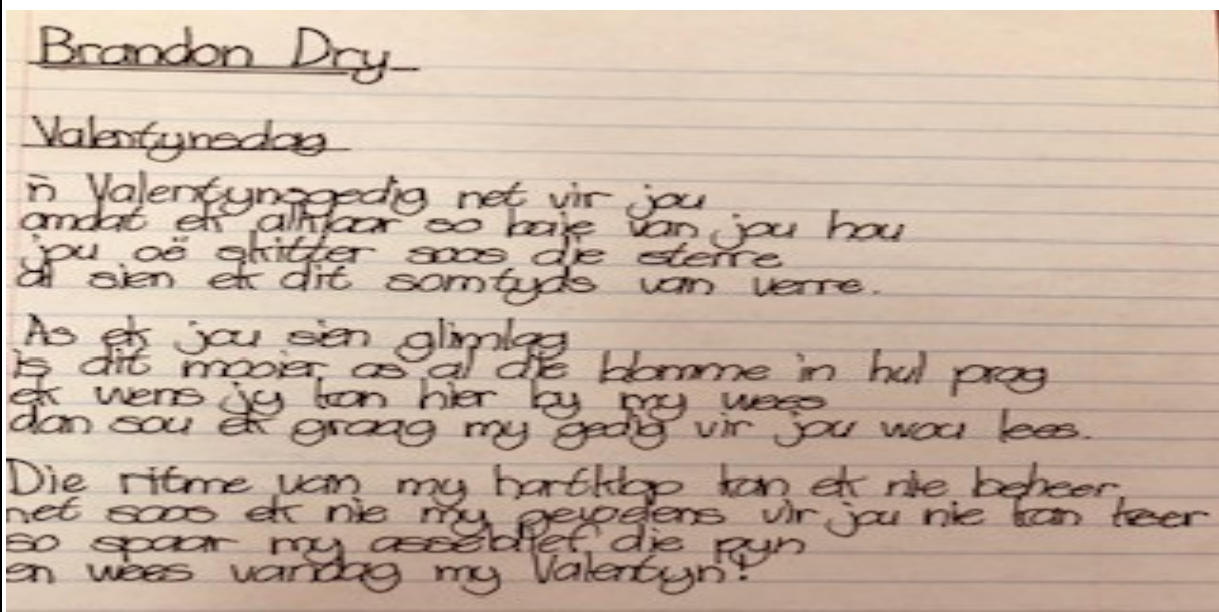 Brandon Dry
Valentynsdag
'n Valentynsgedig net vir jou
omdat ek alklaar so baie van jou hou
jou oë skitter soos die sterre
al sien ek dit somtyds van verre.
As ek jou sien glimlag
is dit mooier as al die blomme in hul prag
ek wens jy kan hier by my wees
dan sou ek graag my gedig vir jou wou lees.
Die ritme van my hartklop kan ek nie beheer
net soos ek nie my gevoelens vir jou nie kan keer
so spaar my asseblief die pyn
en wees vandag my Valentyn!